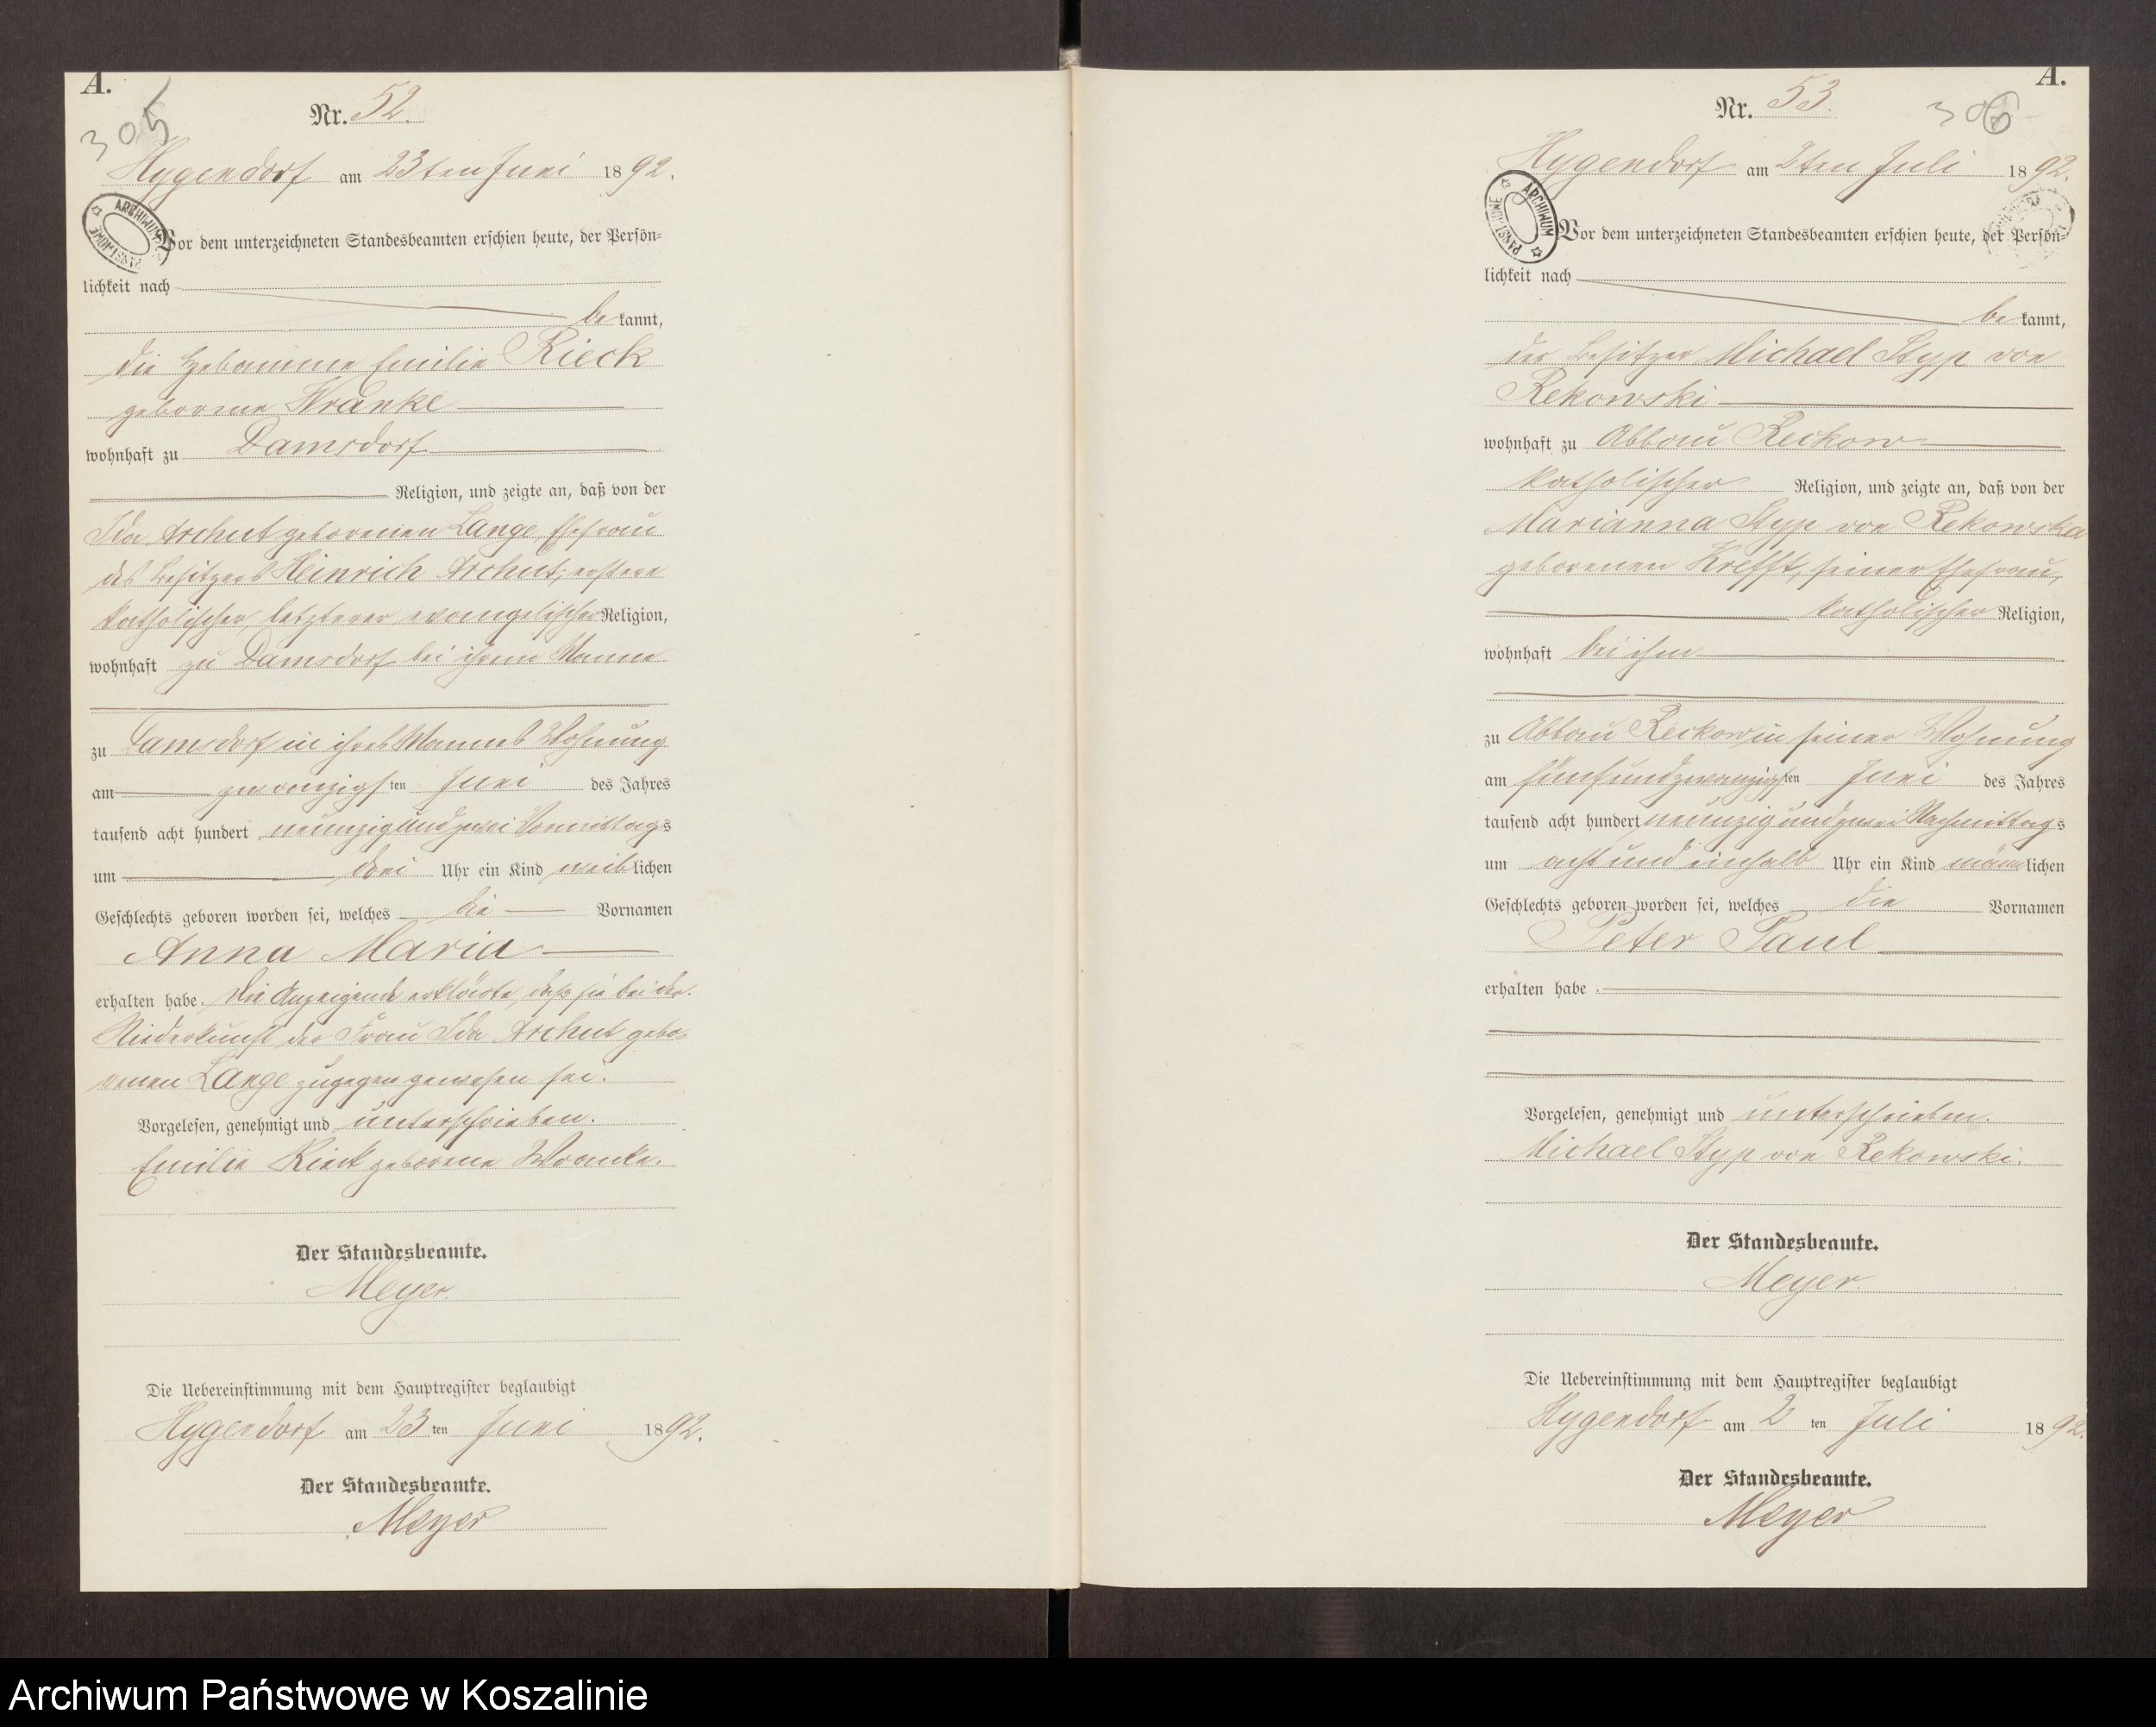 A.
305
Nr. 52.
Hygendorf am 23ten Juni 1892.
ARCHIWUM PAŃSTWOWE
Vor dem unterzeichneten Standesbeamten erschien heute, der Persön-
lichkeit nach
be kannt,
die Hebamme Emilie Rieck
geborene Wranke
wohnhaft zu Damsdorf
Religion, und zeigte an, daß von der
Ida Archut geborenen Lange, Ehefrau
des Besitzers Heinrich Archut, erstere
katholischer, letzterer evangelischer Religion,
wohnhaft zu Damsdorf bei ihrem Manne
zu Damsdorf in ihres Mannes Wohnung
am zwanzigsten Juni des Jahres
tausend acht hundert neunzig und zwei Vormittags
um drei Uhr ein Kind weiblichen
Geschlechts geboren worden sei, welches die Vornamen
Anna Maria
erhalten habe. Die Anzeigende erklärte, daß sie bei der
Niederkunft der Frau Ida Archut gebo-
renen Lange zugegen gewesen sei.
Vorgelesen, genehmigt und unterschrieben.
Emilie Rieck geborene Wranke.
Der Standesbeamte.
Meyer.
Die Uebereinstimmung mit dem Hauptregister beglaubigt
Hygendorf am 23 ten Juni 1892.
Der Standesbeamte.
Meyer
A.
306
Nr. 53.
Hygendorf am 2ten Juli 1892.
ARCHIWUM PAŃSTWOWE
Vor dem unterzeichneten Standesbeamten erschien heute, der Persön-
lichkeit nach
be kannt,
der Besitzer Michael Styp von
Rekowski
wohnhaft zu Abbau Reckow
katholischer Religion, und zeigte an, daß von der
Marianna Styp von Rekowska
geborenen Krefft, seiner Ehefrau,
katholischer Religion,
wohnhaft bei ihm
zu Abbau Reckow in seiner Wohnung
am fünfundzwanzigsten Juni des Jahres
tausend acht hundert neunzig und zwei Nachmittags
um acht und einhalb Uhr ein Kind männlichen
Geschlechts geboren worden sei, welches die Vornamen
Peter Paul
erhalten habe.
Vorgelesen, genehmigt und unterschrieben.
Michael Styp von Rekowski.
Der Standesbeamte.
Meyer.
Die Uebereinstimmung mit dem Hauptregister beglaubigt
Hygendorf am 2 ten Juli 1892.
Der Standesbeamte.
Meyer
Archiwum Państwowe w Koszalinie